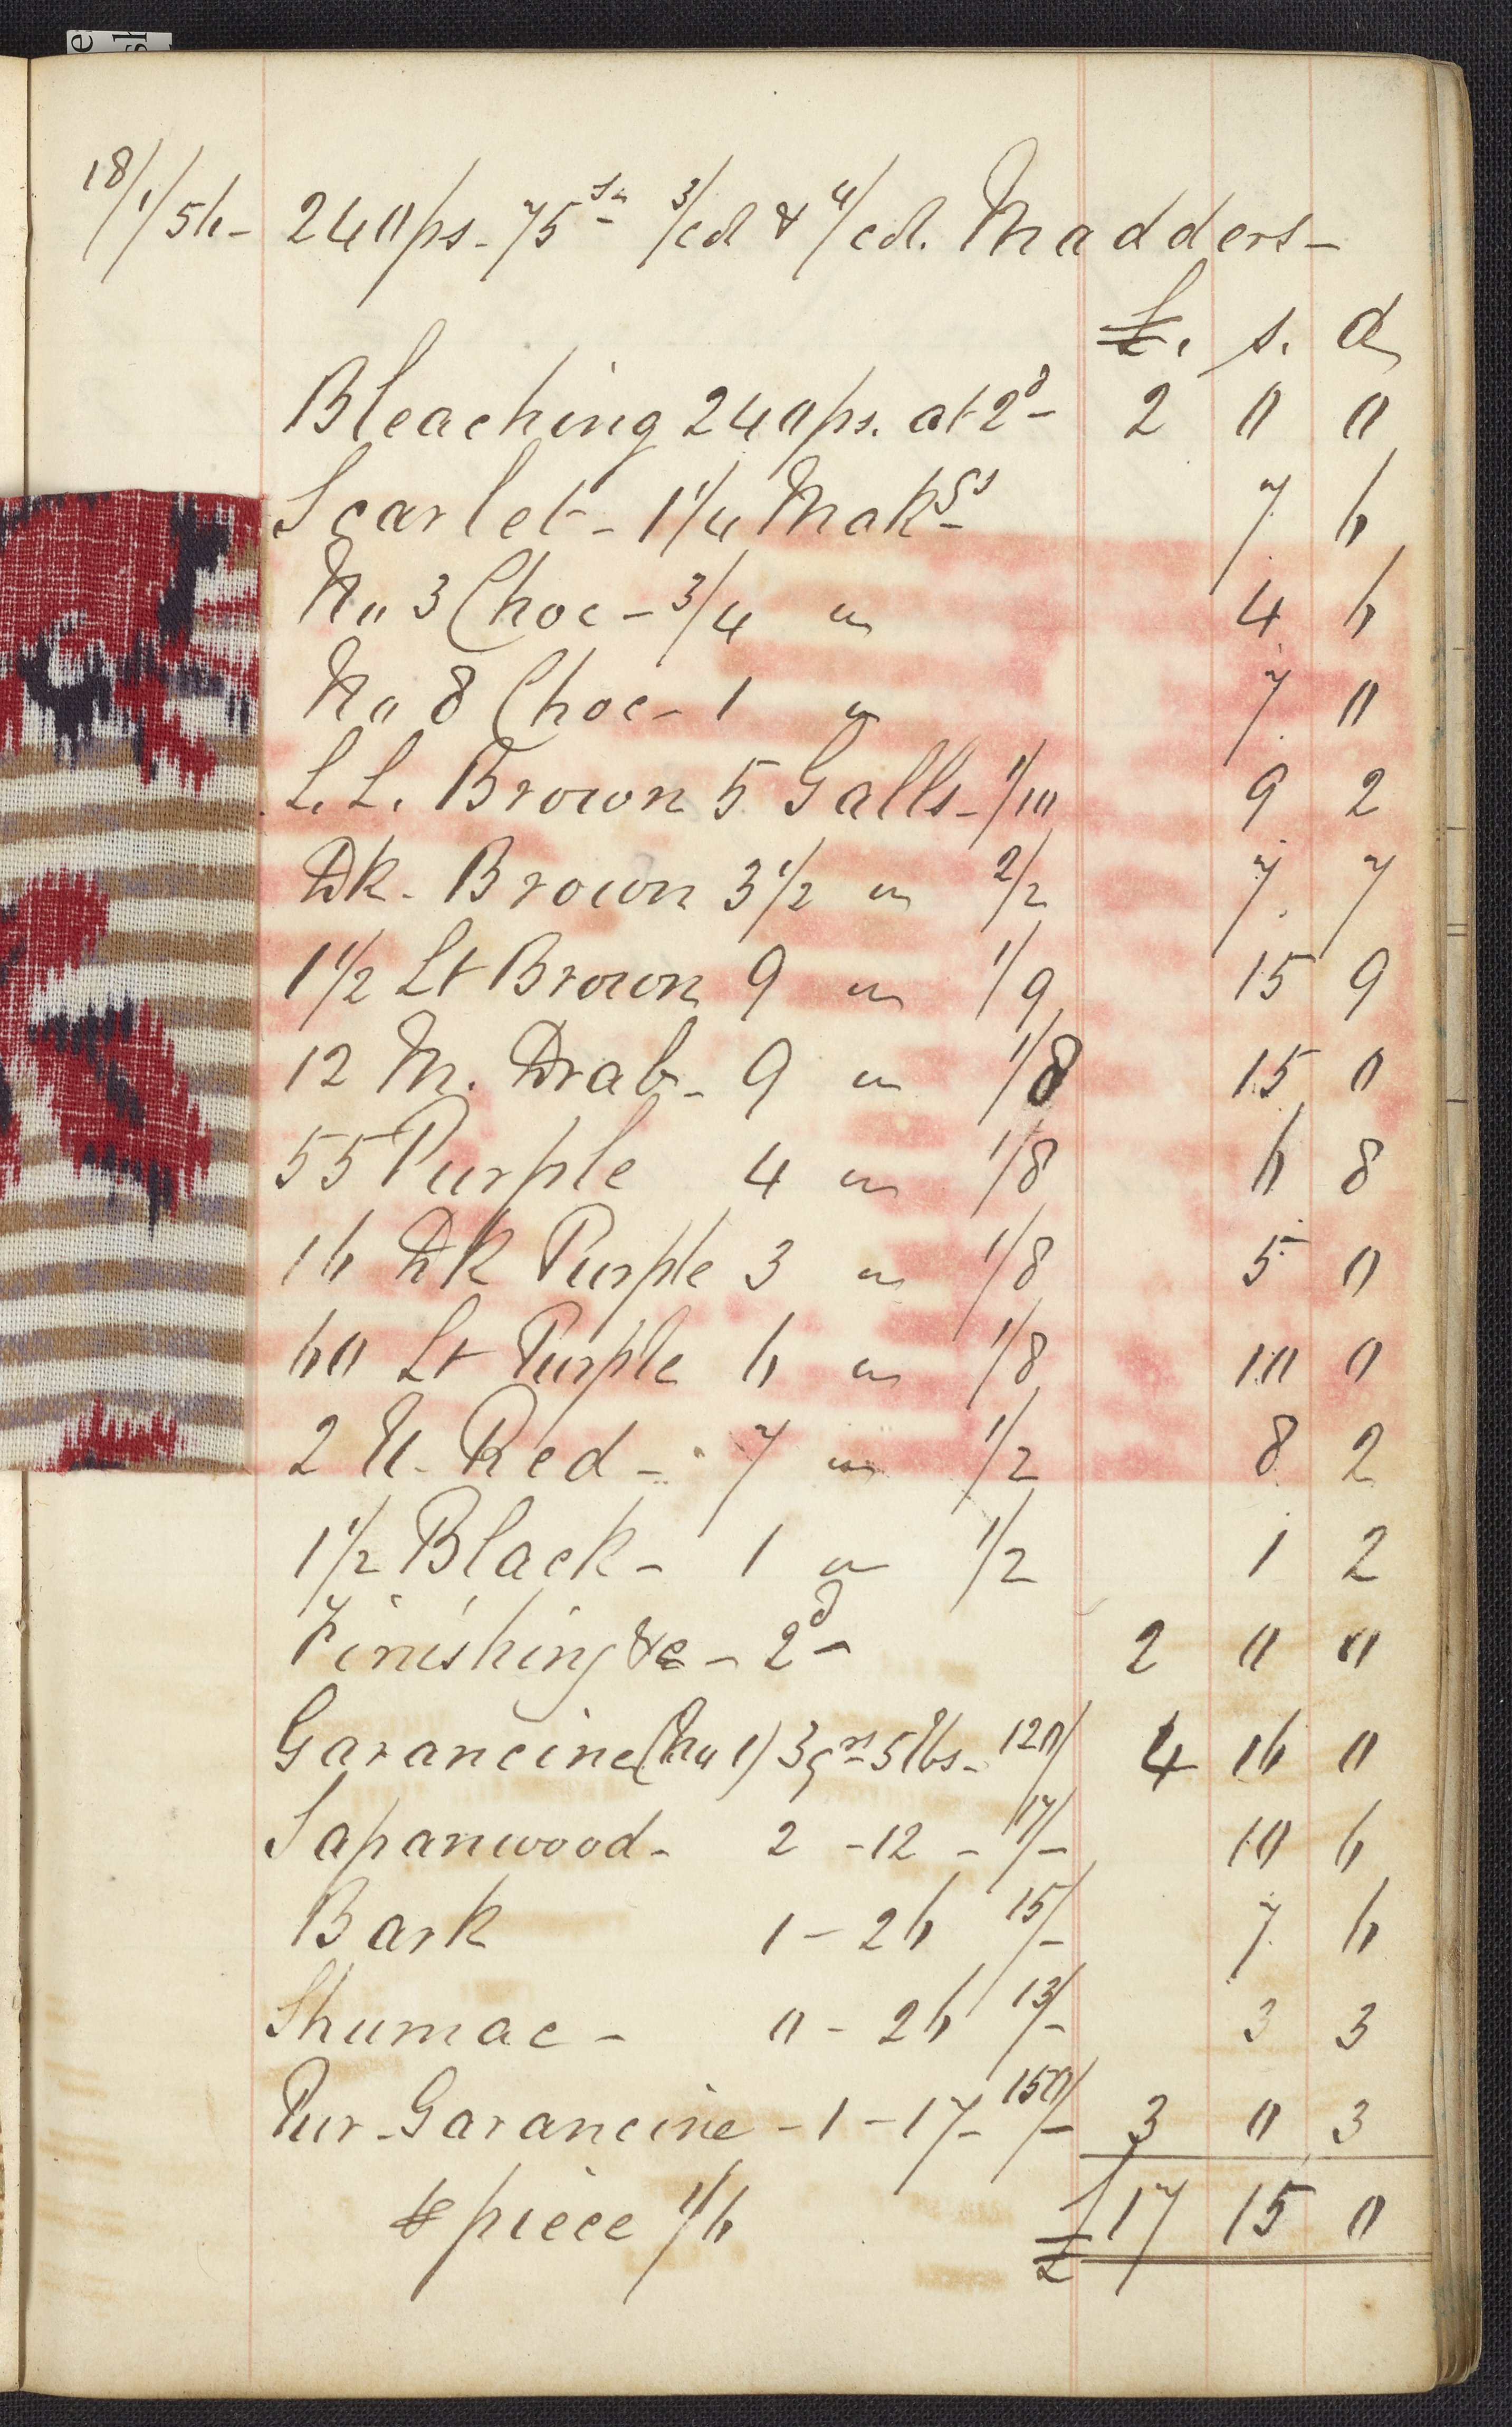 18/1/56- 240ps. 75s 3/cd & 4/cd. Madders-
£. s. d
Bleaching 240ps. at 2d- 2 0 0
Scarlet- 1 1/4 Makgs 7 6
No 3 Choc - 3/4 " 4 6
No 8 Choc- 1 " 7 0
L. L. Brown 5 Galls- 1/10 9 2
Dk. Brown 3 1/2 " 2/2 7 7
1 1/2 Lt Brown 9 " 1/9 15 9
12 M. Drab- 9 " 1/8 15 0
55 Purple 4 " 1/8 6 8
16 Dk Purple 3 " 1/8 5 0
60 Lt Purple 6 " 1/8 10 0
2 N. Red- 7 " 1/2 8 2
1 1/2 Black- 1 " 1/2 1 2
Finishing &c - 2d- 2 0 0
Garancine (No 1) 3qrs 5lbs- 120/ 4 16 0
Sapanwood- 2 -12 - 17/- 10 6
Bark 1 - 26 15/- 7 6
Shumac - 0 - 26 13/- 3 3
Pur. Garancine - 1 - 17- 150/- 3 0 3
⅌ piece 1/6 £17 15 0